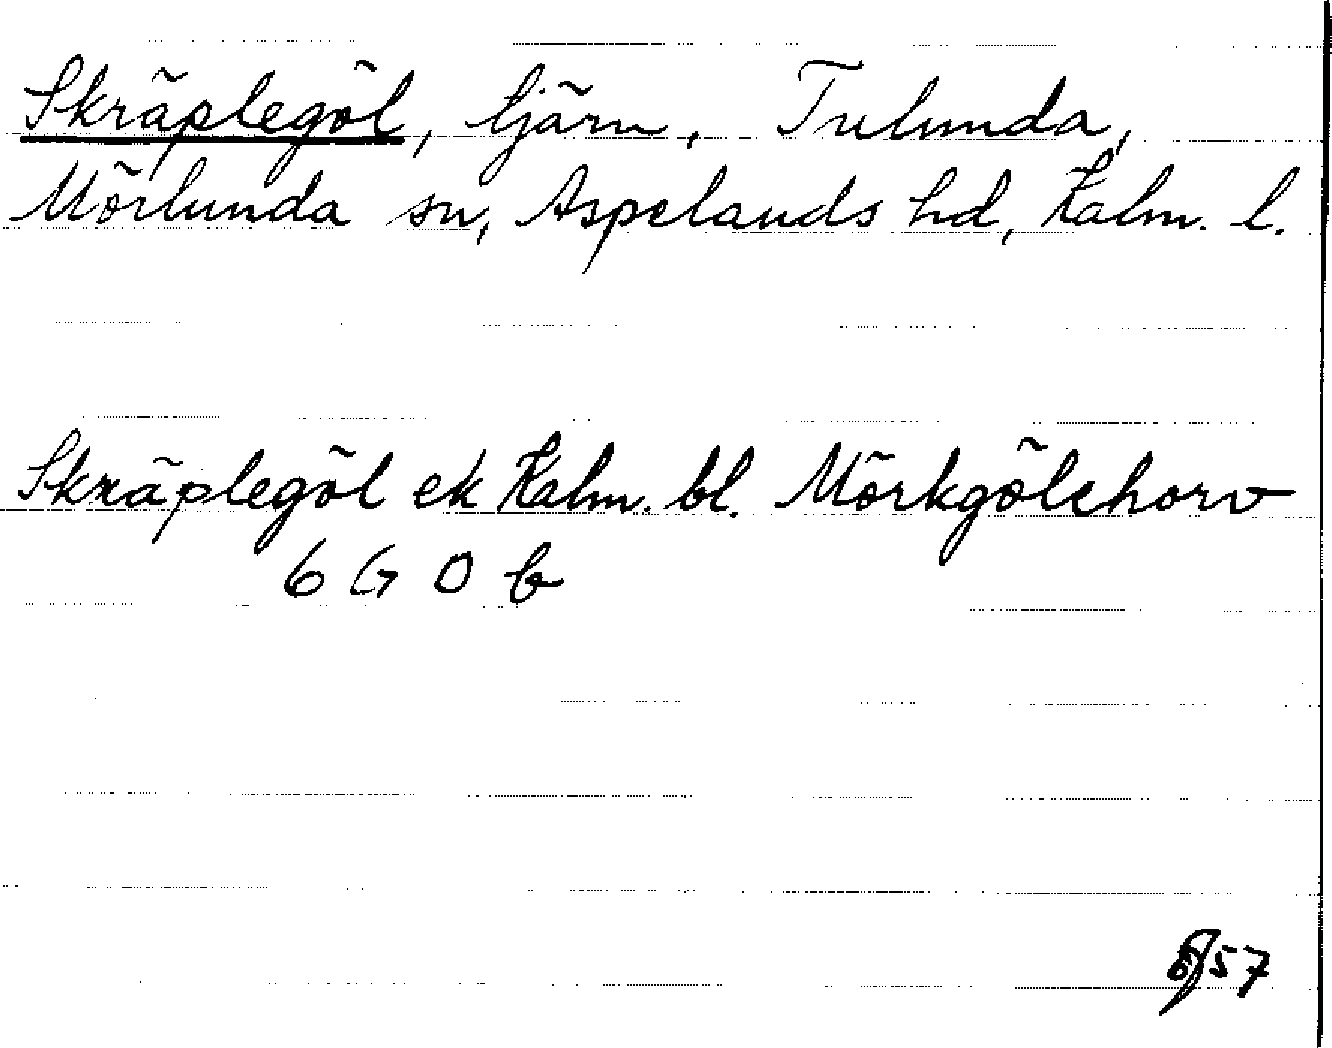 Skräplegöl, tjärn, Tulunda,
Mörlunda sn, Aspelands hd, Kalm. l.
Skräplegöl ek Kalm. bl. Mörkgölehorv
6 G 0 b
57